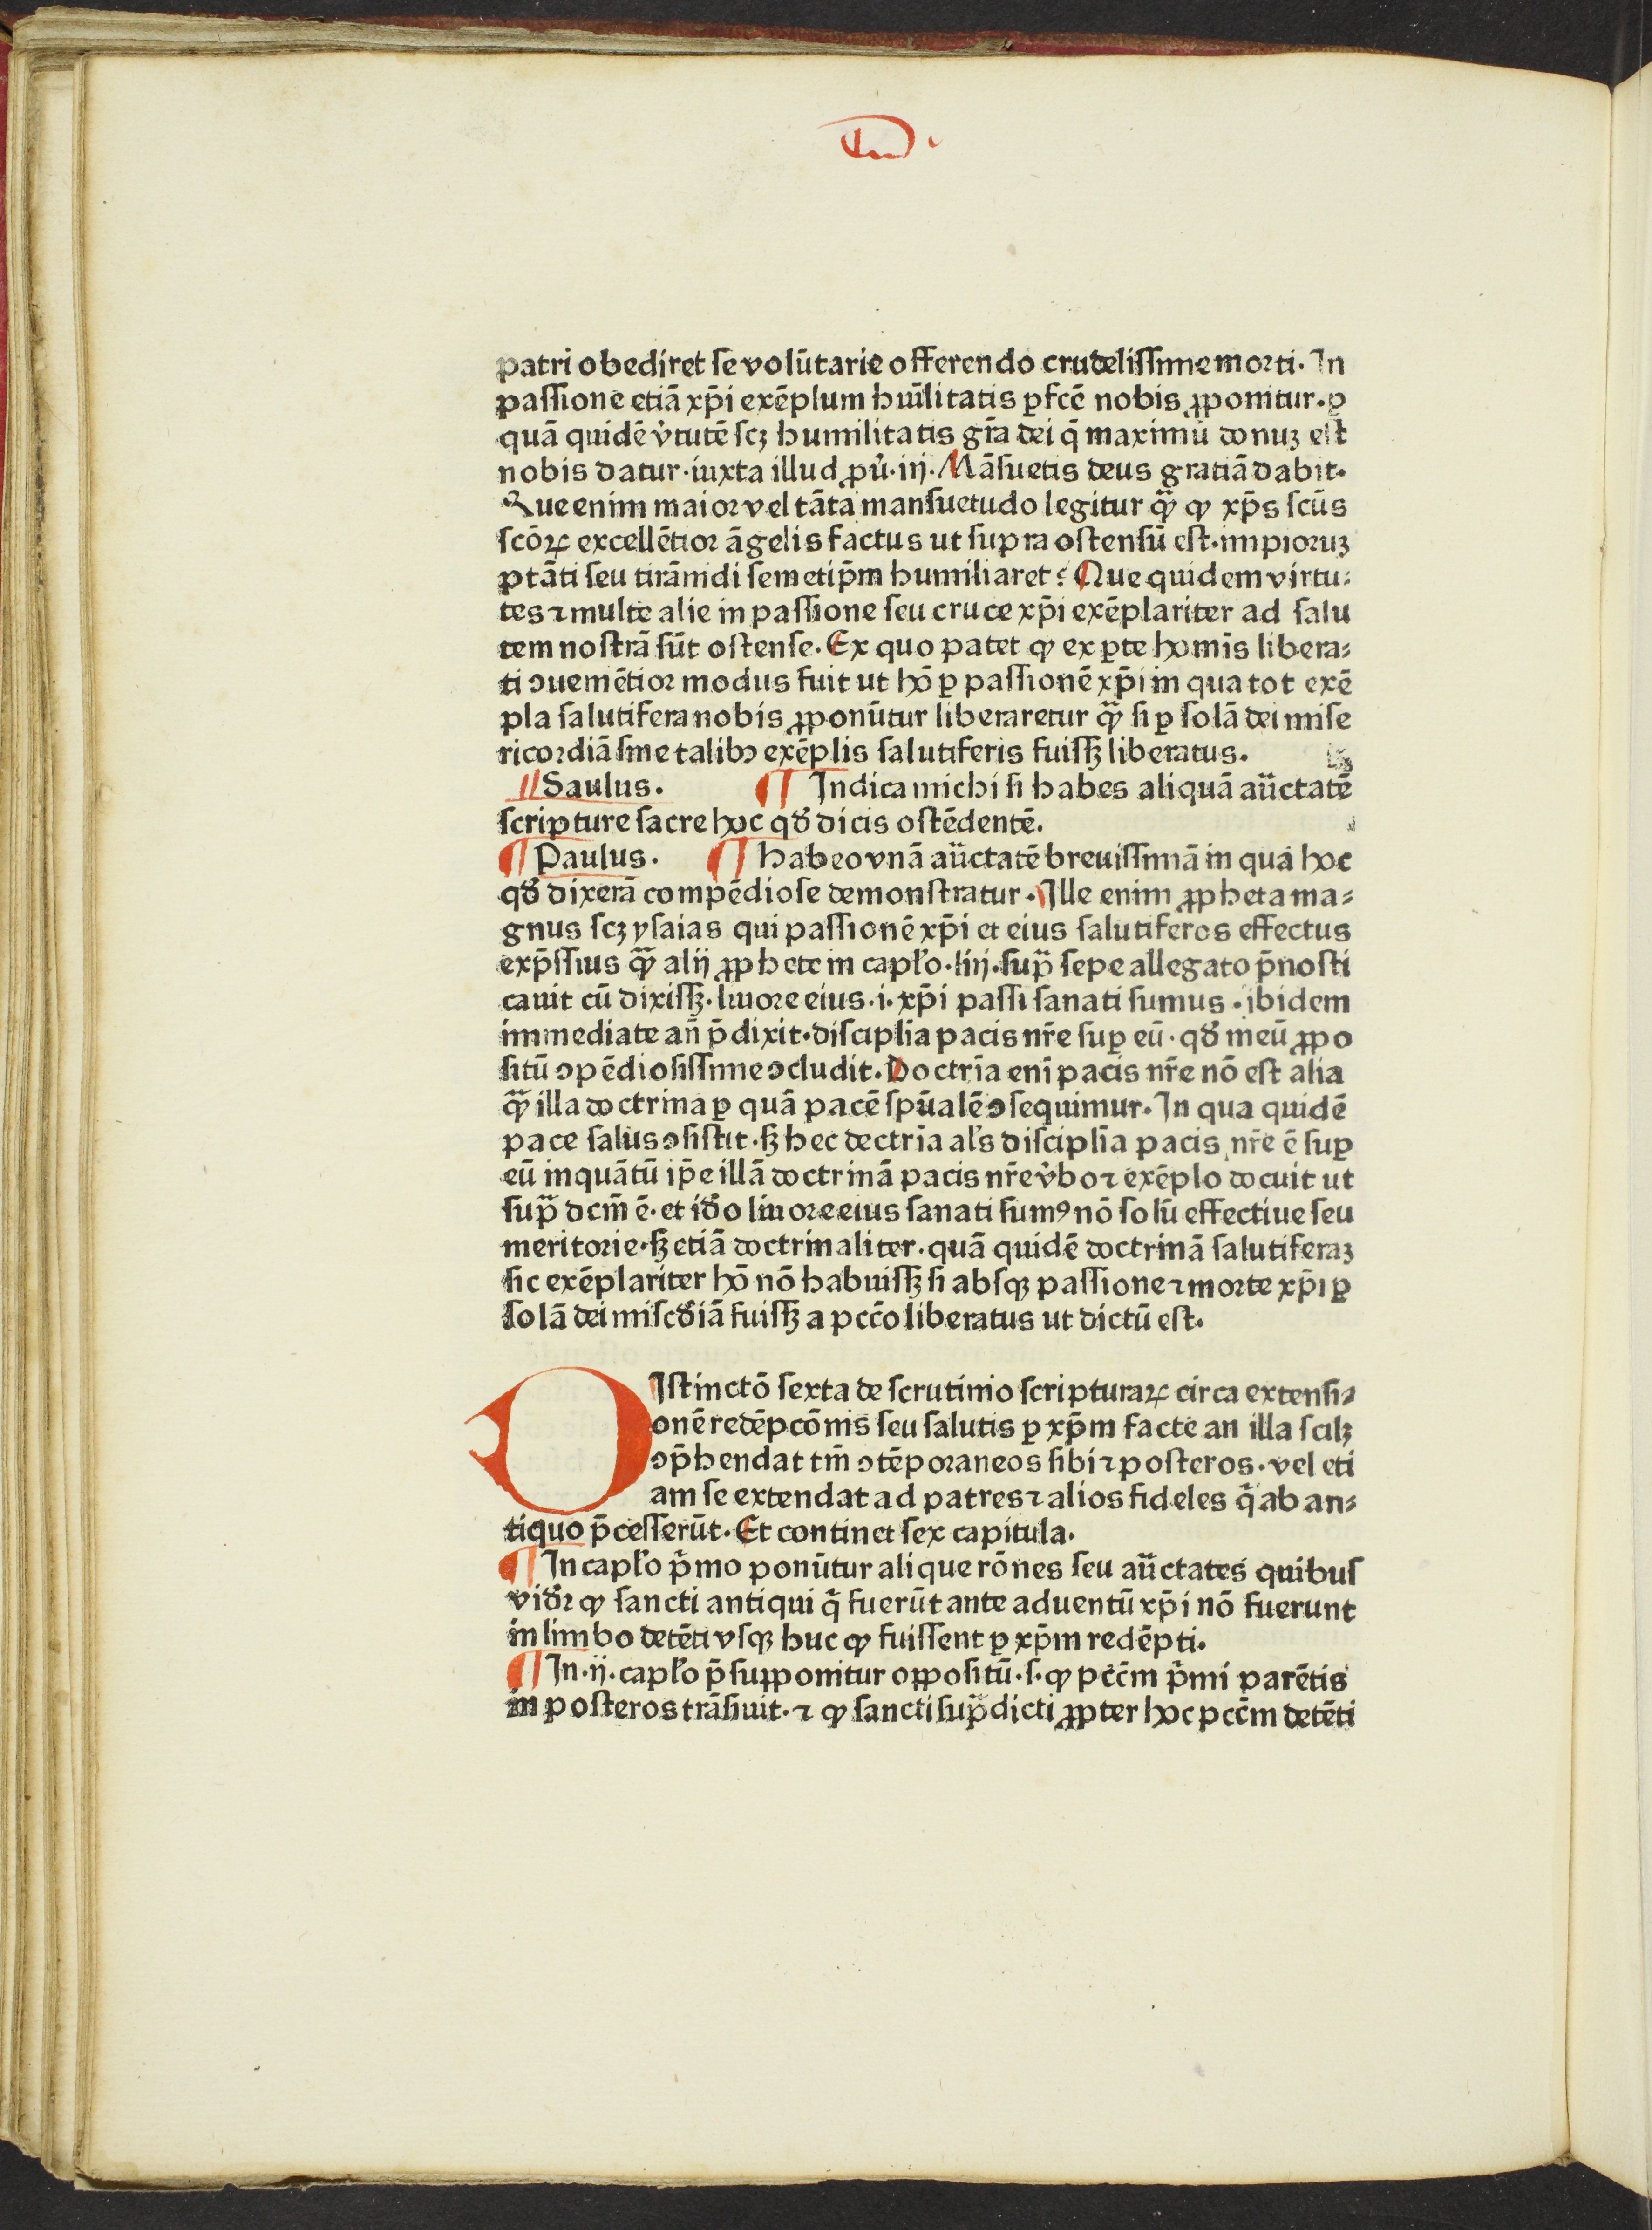 patri obediret se volūtarie offerendo crudelissime morti. In
passione etiā xp̄i exēplum hūilitatis ꝑfcē nobis ꝓponitur. ꝑ
quā quidē v̓tutē scꝫ humilitatis gr̄a dei q̄ maximū donuꝫ est
nobis datur. iuxta illud ꝓu̓. iij. Māsuetis deus gratiā dabit.
Que enim maior vel tāta mansuetudo legitur qᷓꝫ ꝙ xp̄s scūs
scōꝝ excellētior āgelis factus ut supra ostensū est. impioruꝫ
ptāti seu tirānidi semetip̄m humiliaret: Que quidem virtu⸗
tes ⁊ multe alie in passione seu cruce xp̄i exēplariter ad salu
tem nostrā sūt ostense. Ex quo patet ꝙ ex ꝑte homīs libera⸗
ti ↄueniētior modus fuit ut hō ꝑ passionē xp̄i in qua tot exē
pla salutifera nobis ꝓponūtur liberaretur qᷓꝫ si ꝑ solā dei mise
ricordiā sine talibꝫ exēplis salutiferis fuissꝫ liberatus.
Saulus. ¶ Indica michi si habes aliquā au̅ctatē
scripture sacre hoc qđ dicis ostēdentē.
¶ Paulus. ¶ Habeo vnā au̅ctatē breuissimā in qua hoc
qđ dixerā compēdiose demonstratur. Ille enim ꝓpheta ma⸗
gnus scꝫ ysaias qui passionē xp̄i et eius salutiferos effectus
exp̄ssius qᷓꝫ alij ꝓphete in capło. liij. supᷓ sepe allegato p̄nosti
cauit cū dixissꝫ. liuore eius .i. xp̄i passi sanati sumus. ibidem
immediate añ p̄dixit. disciplīa pacis nr̄e suꝑ eū. qđ meū ꝓpo
sitū ↄpēdiosissime ↄcludit. Doctrīa enī pacis nr̄e nō est alia
qᷓꝫ illa doctrina ꝑ quā pacē spūalē ↄsequimur. In qua quidē
pace salus ↄsistit. sꝫ hec dectrīa als̓ disciplīa pacis nr̄e ē suꝑ
eū inquātū ip̄e illā doctrinā pacis nr̄e v̓bo ⁊ exēplo docuit ut
supᷓ dcm̄ ē. et iđo liuore eius sanati sumꝰ nō solū effectiue seu
meritorie. sꝫ etiā doctrinaliter. quā quidē doctrinā salutiferaꝫ
sic exēplariter hō nō habuissꝫ si absqꝫ passione ⁊ morte xp̄i ꝑ
solā dei miscđiā fuissꝫ a pccō liberatus ut dictū est.
DIstinctō sexta de scrutinio scripturaꝝ circa extensi⸗
onē redēpcōnis seu salutis ꝑ xp̄m facte an illa scilꝫ
ↄp̄hendat tm̄ ↄtēporaneos sibi ⁊ posteros. vel eti
am se extendat ad patres ⁊ alios fideles q̇ ab an⸗
tiquo p̄cesserūt. Et continet sex capitula.
¶ In capło p̓mo ponūtur alique rōnes seu au̅ctates quibus
viđr ꝙ sancti antiqui q̇ fuerūt ante aduentū xp̄i nō fuerunt
in limbo detēti vsqꝫ huc ꝙ fuissent ꝑ xp̄m redēpti.
¶ In .ij. capło p̄supponitur oppositū .s. ꝙ pcc̄m p̓mi parētis
in posteros trāsiuit. ⁊ ꝙ sancti supᷓdicti ꝓpter hoc pcc̄m detēti